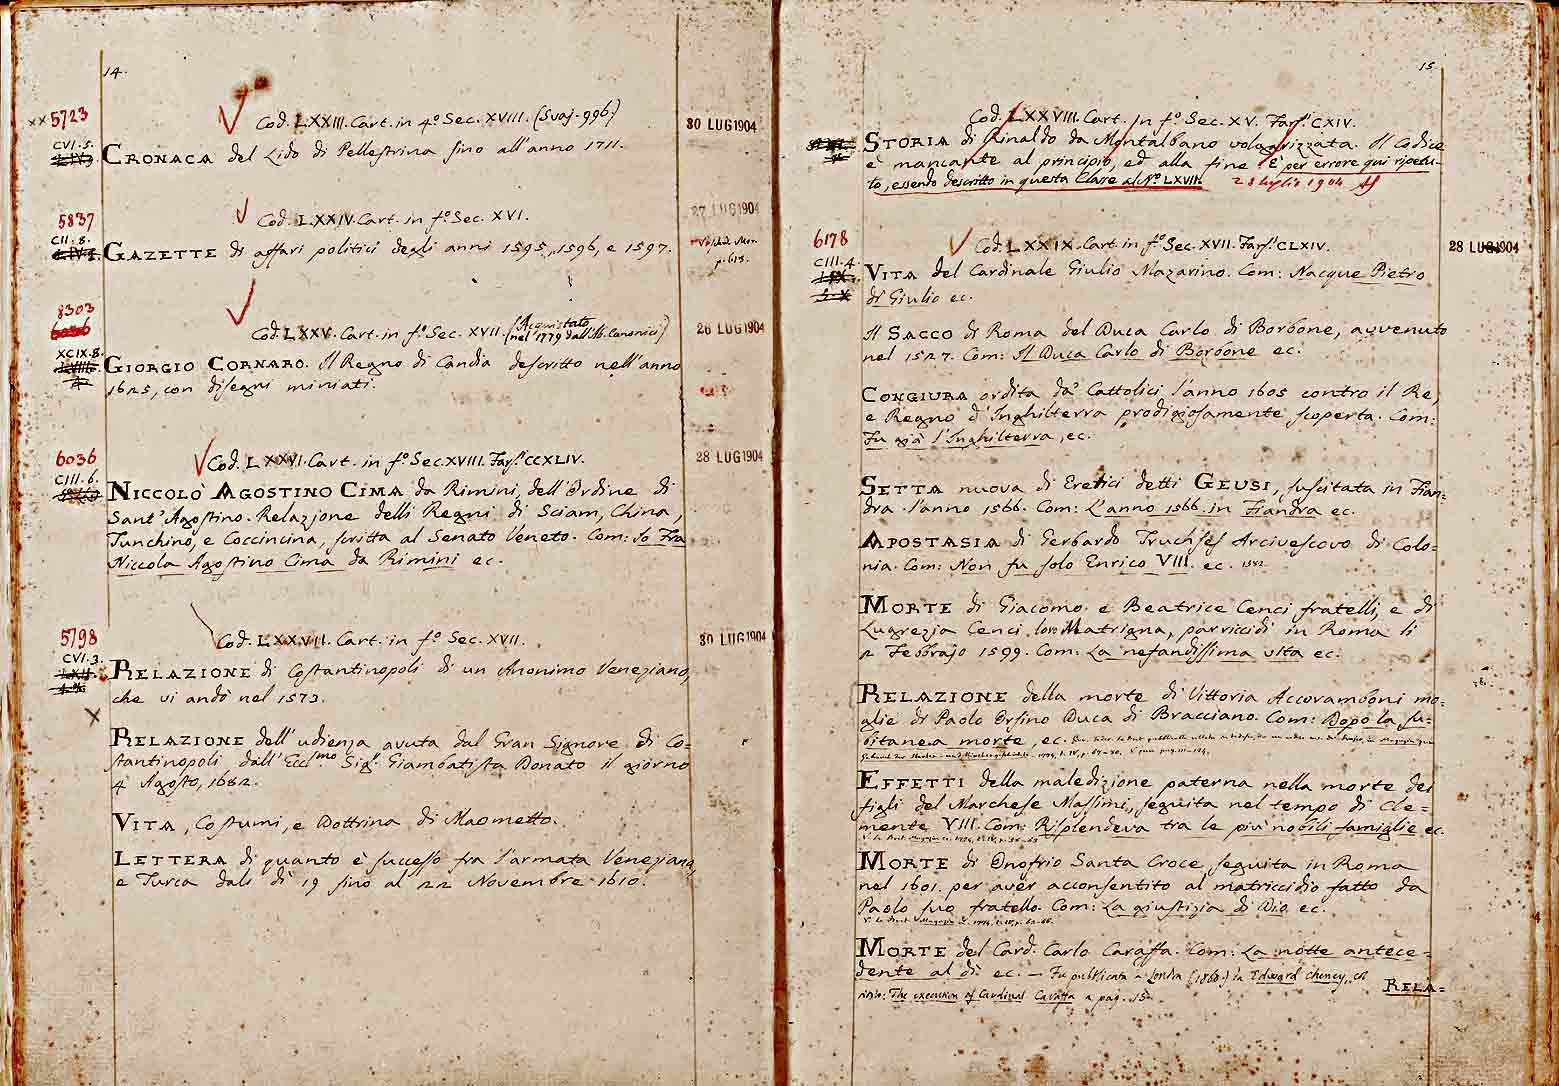 14.
xx 5723
Cod. LXXIII. Cart. in 4.º Sec. XVIII. (Svaj. 996.)
30 LUG 1904
CVI. 5.
CRONACA del Lido di Pellestrina sino all'anno 1711.
5837
Cod. LXXIV. Cart. in fº. Sec. XVI.
27 LUG 1904
CII. 8.
GAZETTE di affari politici degli anni 1595, 1596, e 1597.
p. 618.
8303
6036
Cod. LXXV. Cart. in fº. Sec. XVII. (Acquistato
nel 1779 dall'Ab. Canonici)
26 LUG 1904
XCIX. 8.
GIORGIO CORNARO. Il Regno di Candia descritto nell'anno
1625, con disegni miniati.
6036
Cod. LXXVI. Cart. in fº. Sec. XVIII. Fars. CCXLIV.
28 LUG 1904
CIII. 6.
NICCOLÒ AGOSTINO CIMA da Rimini, dell'Ordine di
Sant'Agostino. Relazione delli Regni di Sciam, China,
Tunchino, e Coccincina, scritta al Senato Veneto. Com: Io Fra
Niccola Agostino Cima da Rimini ec.
5798
Cod. LXXVII. Cart. in fº. Sec. XVII.
30 LUG 1904
CVI. 3.
RELAZIONE di Costantinopoli di un Anonimo Veneziano,
che vi andò nel 1573.
X
RELAZIONE dell'udienza avuta dal Gran Signore di Co=
stantinopoli dall'Eccl.mo Sig.r Giambatista Donato il giorno
4 Agosto, 1682.
VITA, Costumi, e Dottrina di Maometto.
LETTERA di quanto è successo fra l'armata Veneziana,
e Turca dali dì 19 sino al 22 Novembre 1610.
15
Cod. LXXVIII. Cart. in fº. Sec. XV. Fars. CXIV.
STORIA di Rinaldo da Montalbano volgarizzata. Il Codice
è mancante al principio, ed alla fine. È per errore qui ripetu-
to, essendo descritto in questa Classe al Nº. LXVII.
28 luglio 1904
6178
Cod. LXXIX. Cart. in fº. Sec. XVII. Fars. CLXIV.
28 LUG 1904
CIII. 4.
VITA del Cardinale Giulio Mazarino. Com: Nacque Pietro
di Giulio ec.
Il SACCO di Roma del Duca Carlo di Borbone, avvenuto
nel 1527. Com: Il Duca Carlo di Borbone ec.
CONGIURA ordita da' Cattolici l'anno 1605 contro il Re,
e Regno d'Inghilterra prodigiosamente scoperta. Com:
Fu già l'Inghilterra, ec.
SETTA nuova di Eretici detti GEUSI, suscitata in Fian=
dra l'anno 1566. Com: L'anno 1566 in Fiandra ec.
APOSTASIA di Gerbardo Truchses Arcivescovo di Colo=
nia. Com: Non fu solo Enrico VIII. ec. 1582
MORTE di Giacomo e Beatrice Cenci fratelli, e di
Lugrezia Cenci loro Matrigna, parricidi in Roma li
2 Febbrajo 1599. Com: La nefandissima vita ec.
RELAZIONE della morte di Vittoria Accoramboni mo=
glie di Paolo Orsino Duca di Bracciano. Com: Dopo la su=
bitanea morte, ec.
EFFETTI della maledizione paterna nella morte dei
figli del Marchese Massimi, seguita nel tempo di Cle=
mente VIII. Com: Risplendeva tra le più nobili famiglie ec.
MORTE di Onofrio Santa Croce, seguita in Roma
nel 1601. per aver acconsentito al matricidio fatto da
Paolo suo fratello. Com: La giustizia di Dio ec.
MORTE del Card. Carlo Caraffa. Com: La notte antece=
dente al dì ec. — Fu pubblicata a Londra (1860) da Edward Cheney,
The execution of Cardinal Caraffa a pag. 15
RELA=